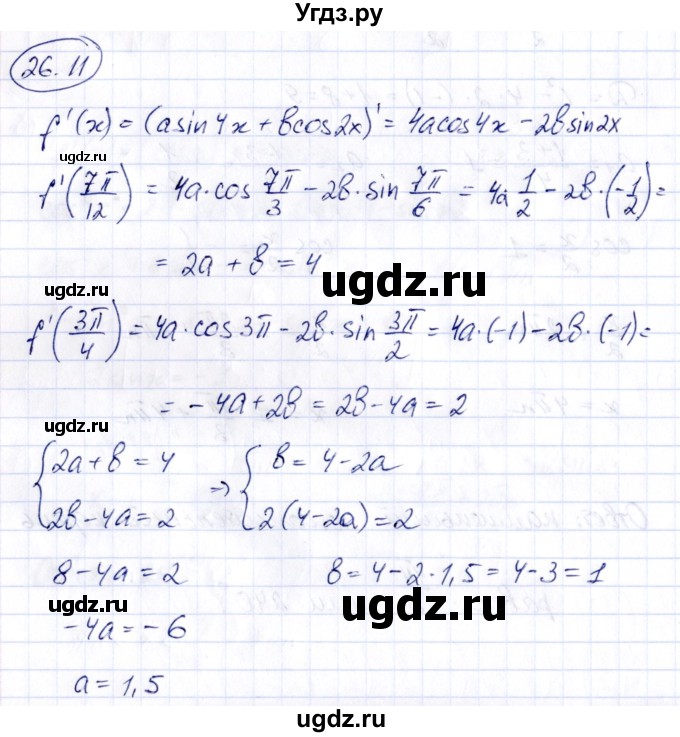 Угдз.ру
26.11
f'(x) = (a sin4x + bcos2x)' = 4acos4x - 2bsin2x
ugdz.ru
f'(7π/12) = 4a·cos 7π/3 - 2b·sin 7π/6 = 4a 1/2 - 2b·(-1/2) =
= 2a + b = 4
ugdz.ru
ugdz.ru
f'(3π/4) = 4a·cos3π - 2b·sin 3π/2 = 4a·(-1) - 2b·(-1) =
= -4a + 2b = 2b - 4a = 2
ugdz.ru
{2a + b = 4 ⇒ {b = 4 - 2a
2b - 4a = 2 2(4-2a) = 2
8 - 4a = 2 b = 4 - 2·1,5 = 4 - 3 = 1
ugdz.ru
ugdz.ru
-4a = -6
a = 1,5
ugdz.ru